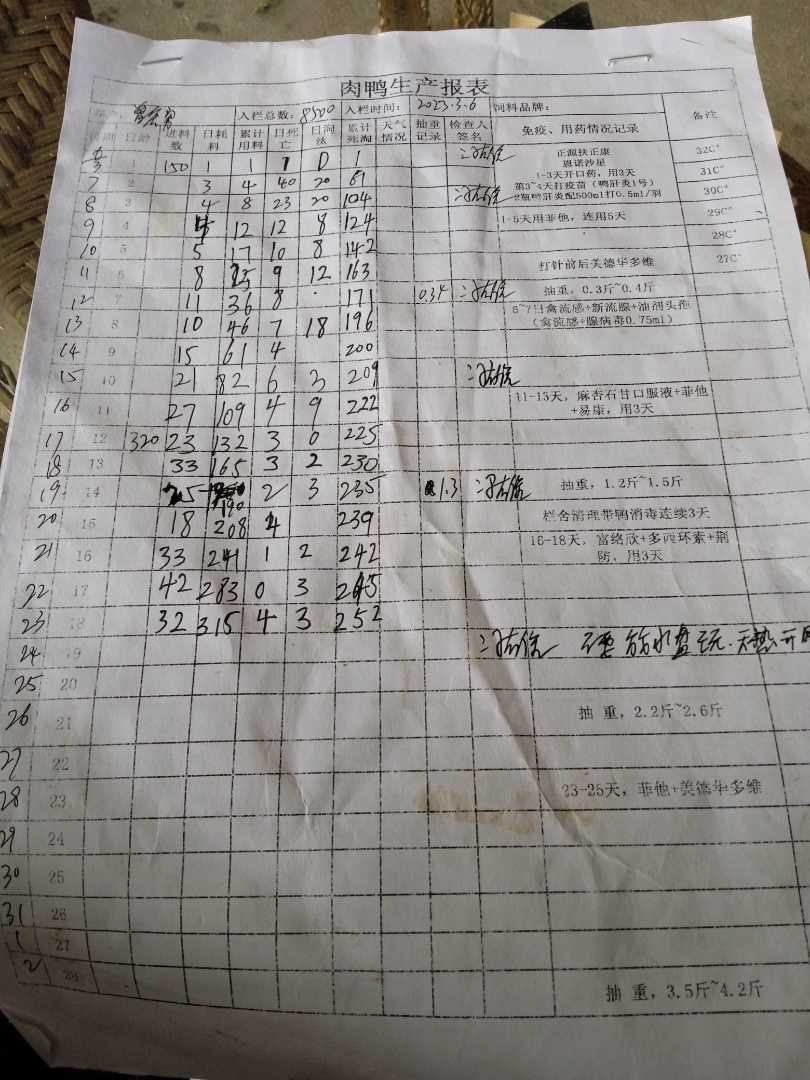 肉鸭生产报表
入栏总数: 8500 入栏时间: 2023.3.6 饲料品牌:
日龄 进料数 日耗料 累计用料 日死亡 日淘汰 累计死淘 天气情况 抽重记录 检查人签名 免疫、用药情况记录 备注
1 150 1 1 1 0 1 正源扶正康 32C°
恩诺沙星
1-3天开口药，用3天
7 2 3 4 40 20 61 第3~4天打疫苗（鸭肝炎1号） 31C°
8 3 4 8 23 20 104 2瓶鸭肝炎配500ml打0.5ml/羽 30C°
9 4 4 12 12 8 124 1-5天用菲他，连用5天 29C°
10 5 5 17 10 8 142 28C°
11 6 8 25 9 12 163 打针前后美德华多维 27C°
12 7 11 36 8 171 0.34 抽重，0.3斤~0.4斤
13 8 10 46 7 18 196 禽流感+新流腺+油剂头孢
（禽流感+腺病毒0.75ml）
14 9 15 61 4 200
15 10 21 82 6 3 209
16 11 27 109 4 9 222 11-13天，麻杏石甘口服液+菲他
+易康，用3天
17 12 320 23 132 3 0 225
18 13 33 165 3 2 230
19 14 25 190 2 3 235 1.3 抽重，1.2斤~1.5斤
20 15 18 208 4 239 栏舍清理带鸭消毒连续3天
21 16 33 241 1 2 242 16-18天，富络欣+多西环素+荆
防，用3天
22 17 42 283 0 3 245
23 18 32 315 4 3 252
24 19
25 20
26 21 抽重，2.2斤~2.6斤
27 22
28 23 23-25天，菲他+美德华多维
29 24
30 25
31 26
1 27
2 28 抽重，3.5斤~4.2斤